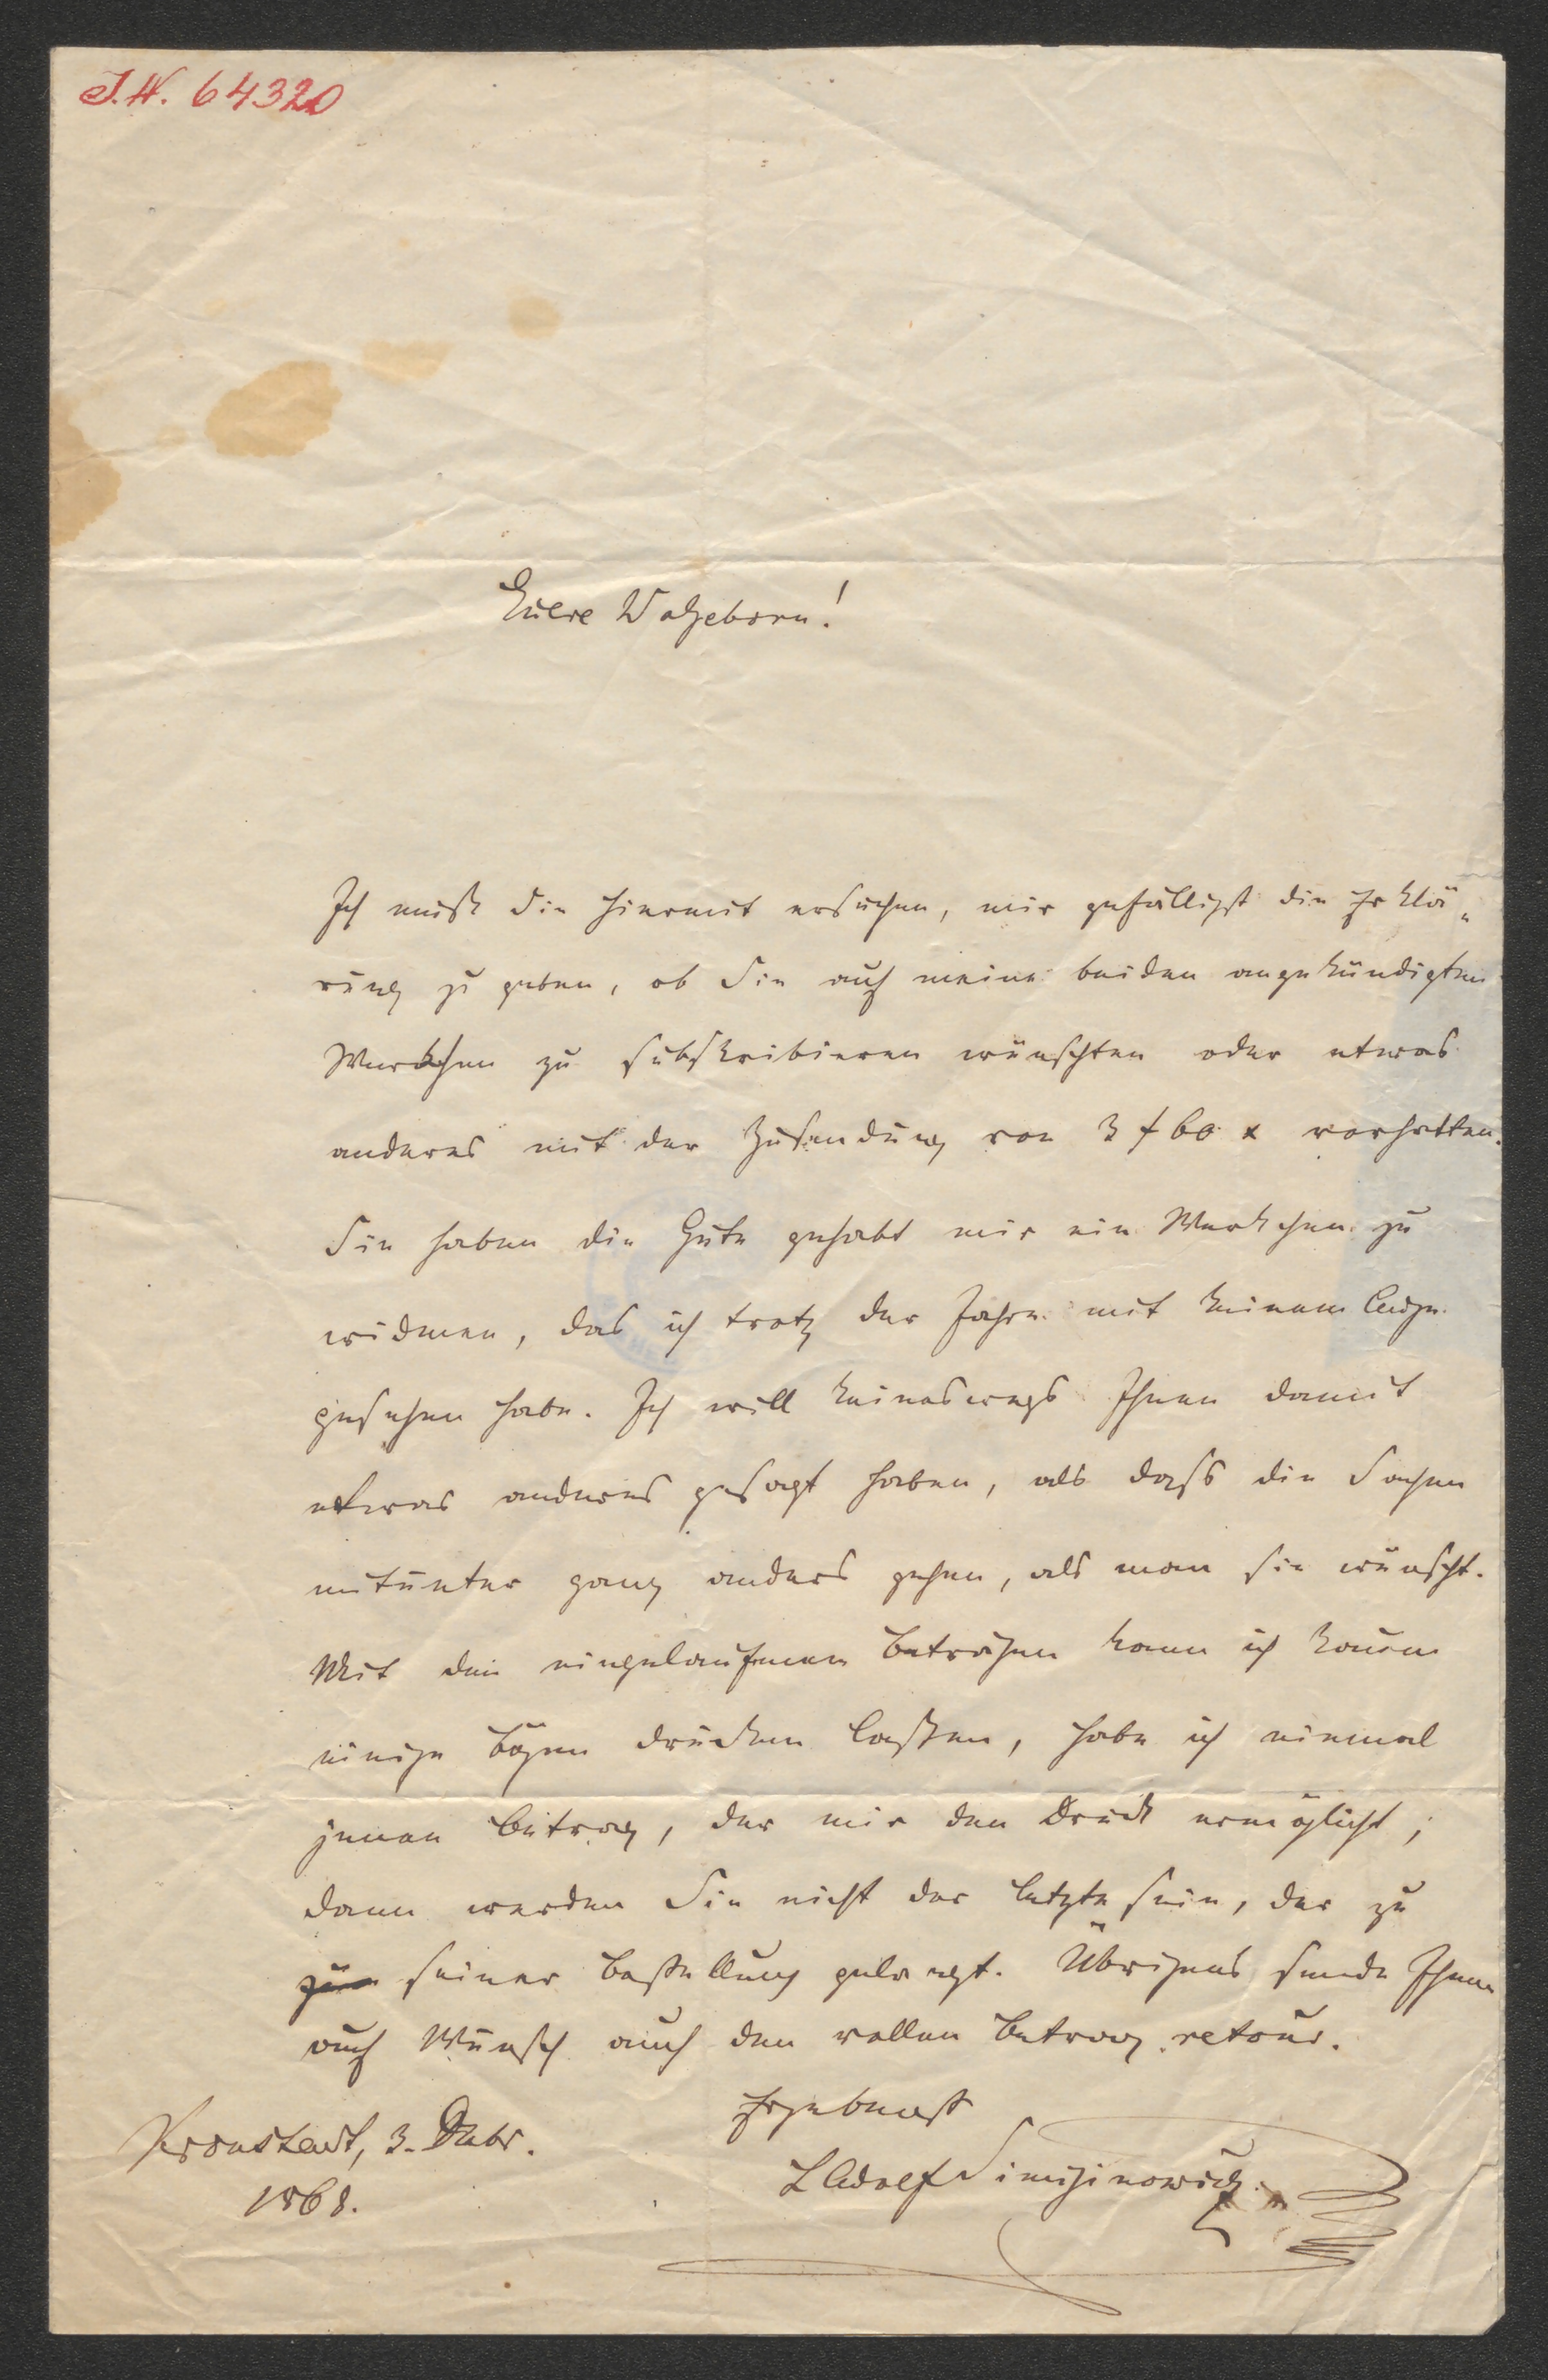 I.N. 64320
Euere Wolgeborn!
Ich muß Sie hiermit ersuchen, mir gefälligst die Erklä„
rung zu geben, ob Sie auf meine beiden angekündigten
Werkchen zu subskribieren wünschten oder etwas
anderes mit der Zusendung von 3 f 60 x vorhatten.
Sie haben die Güte gehabt mir ein Werkchen zu
widmen, das ich trotz der Jahre mit keinem Auge
gesehen habe. Ich will keineswegs Ihnen damit
etwas anderes gesagt haben, als dass die Sachen
mitunter ganz anders gehen, als man sie wünscht.
Mit den eingelaufenen Beträgen kann ich kaum
einige Bögen drucken laßen, habe ich einmal
jenen Betrag, der mir den Druck ermöglicht;
dann werden Sie nicht der letzte sein, der zu
seiner Bestellung gelangt. Übrigens sende Ihnen
auf Wunsch auch den vollen Betrag retour.
Ergebenst
Kronstadt, 3. Dezbr.
L Adolf Simiginowicz
1868.